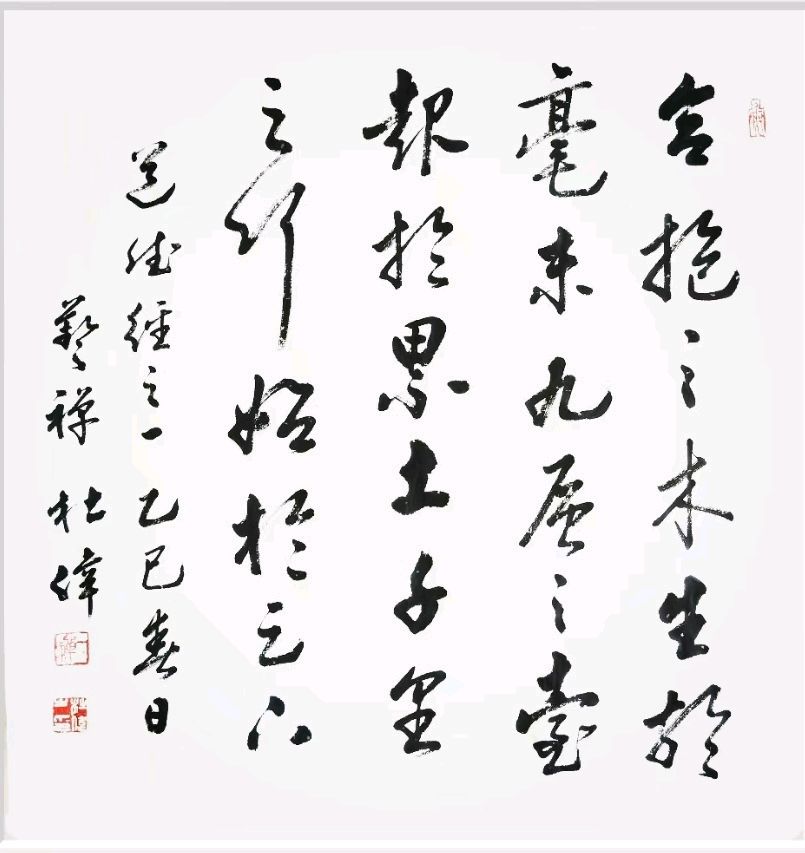 合抱之木生於
毫末九层之臺
起於累土千里
之行始於足下
道德經之一 乙巳春日
藝禪 杜偉